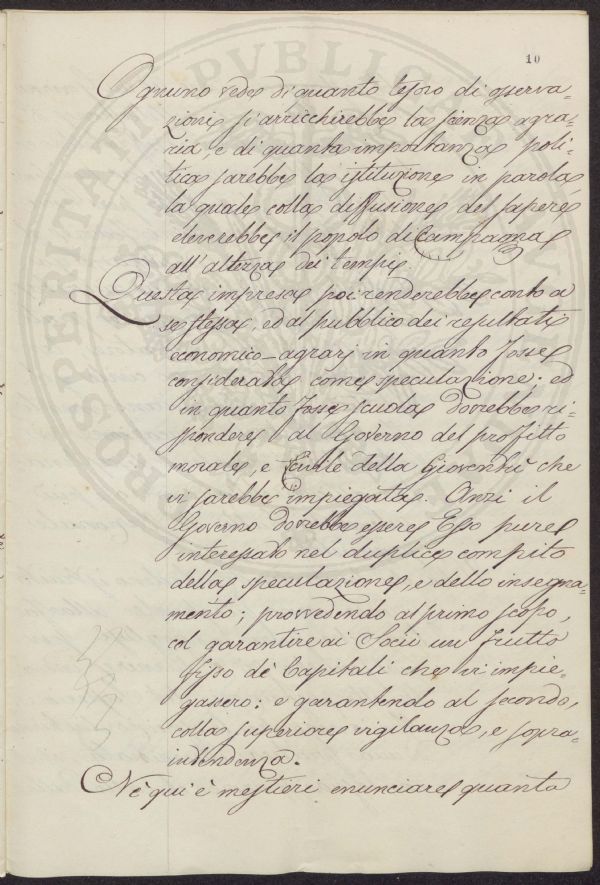 10
Ognuno vede di quanto tesoro di osserva-
zioni s'arricchirebbe la scienza agra-
ria, e di quanta importanza poli-
tica sarebbe la istituzione in parola,
la quale colla diffusione del sapere
eleverebbe il popolo di Campagna
all'altezza dei tempi.
Questa impresa poi renderebbe conto a
se stessa, ed al pubblico dei resultati
economico-agrarj in quanto fosse
considerata come speculazione; ed
in quanto fosse scuola dovrebbe ri-
spondere al Governo del profitto
morale, e Civile della Gioventù che
vi sarebbe impiegata. Anzi il
Governo dovrebbe essere Esso pure
interessato nel duplice compito
della speculazione, e dello insegna-
mento; provvedendo al primo scopo,
col garantire ai Socii un frutto
fisso de' Capitali che vi impie-
gassero; e garantendo al secondo,
colla superiore vigilanza, e sopra-
intendenza.
Nè qui è mestieri enunciare quanto
PROSPERITATI PUBLICAE